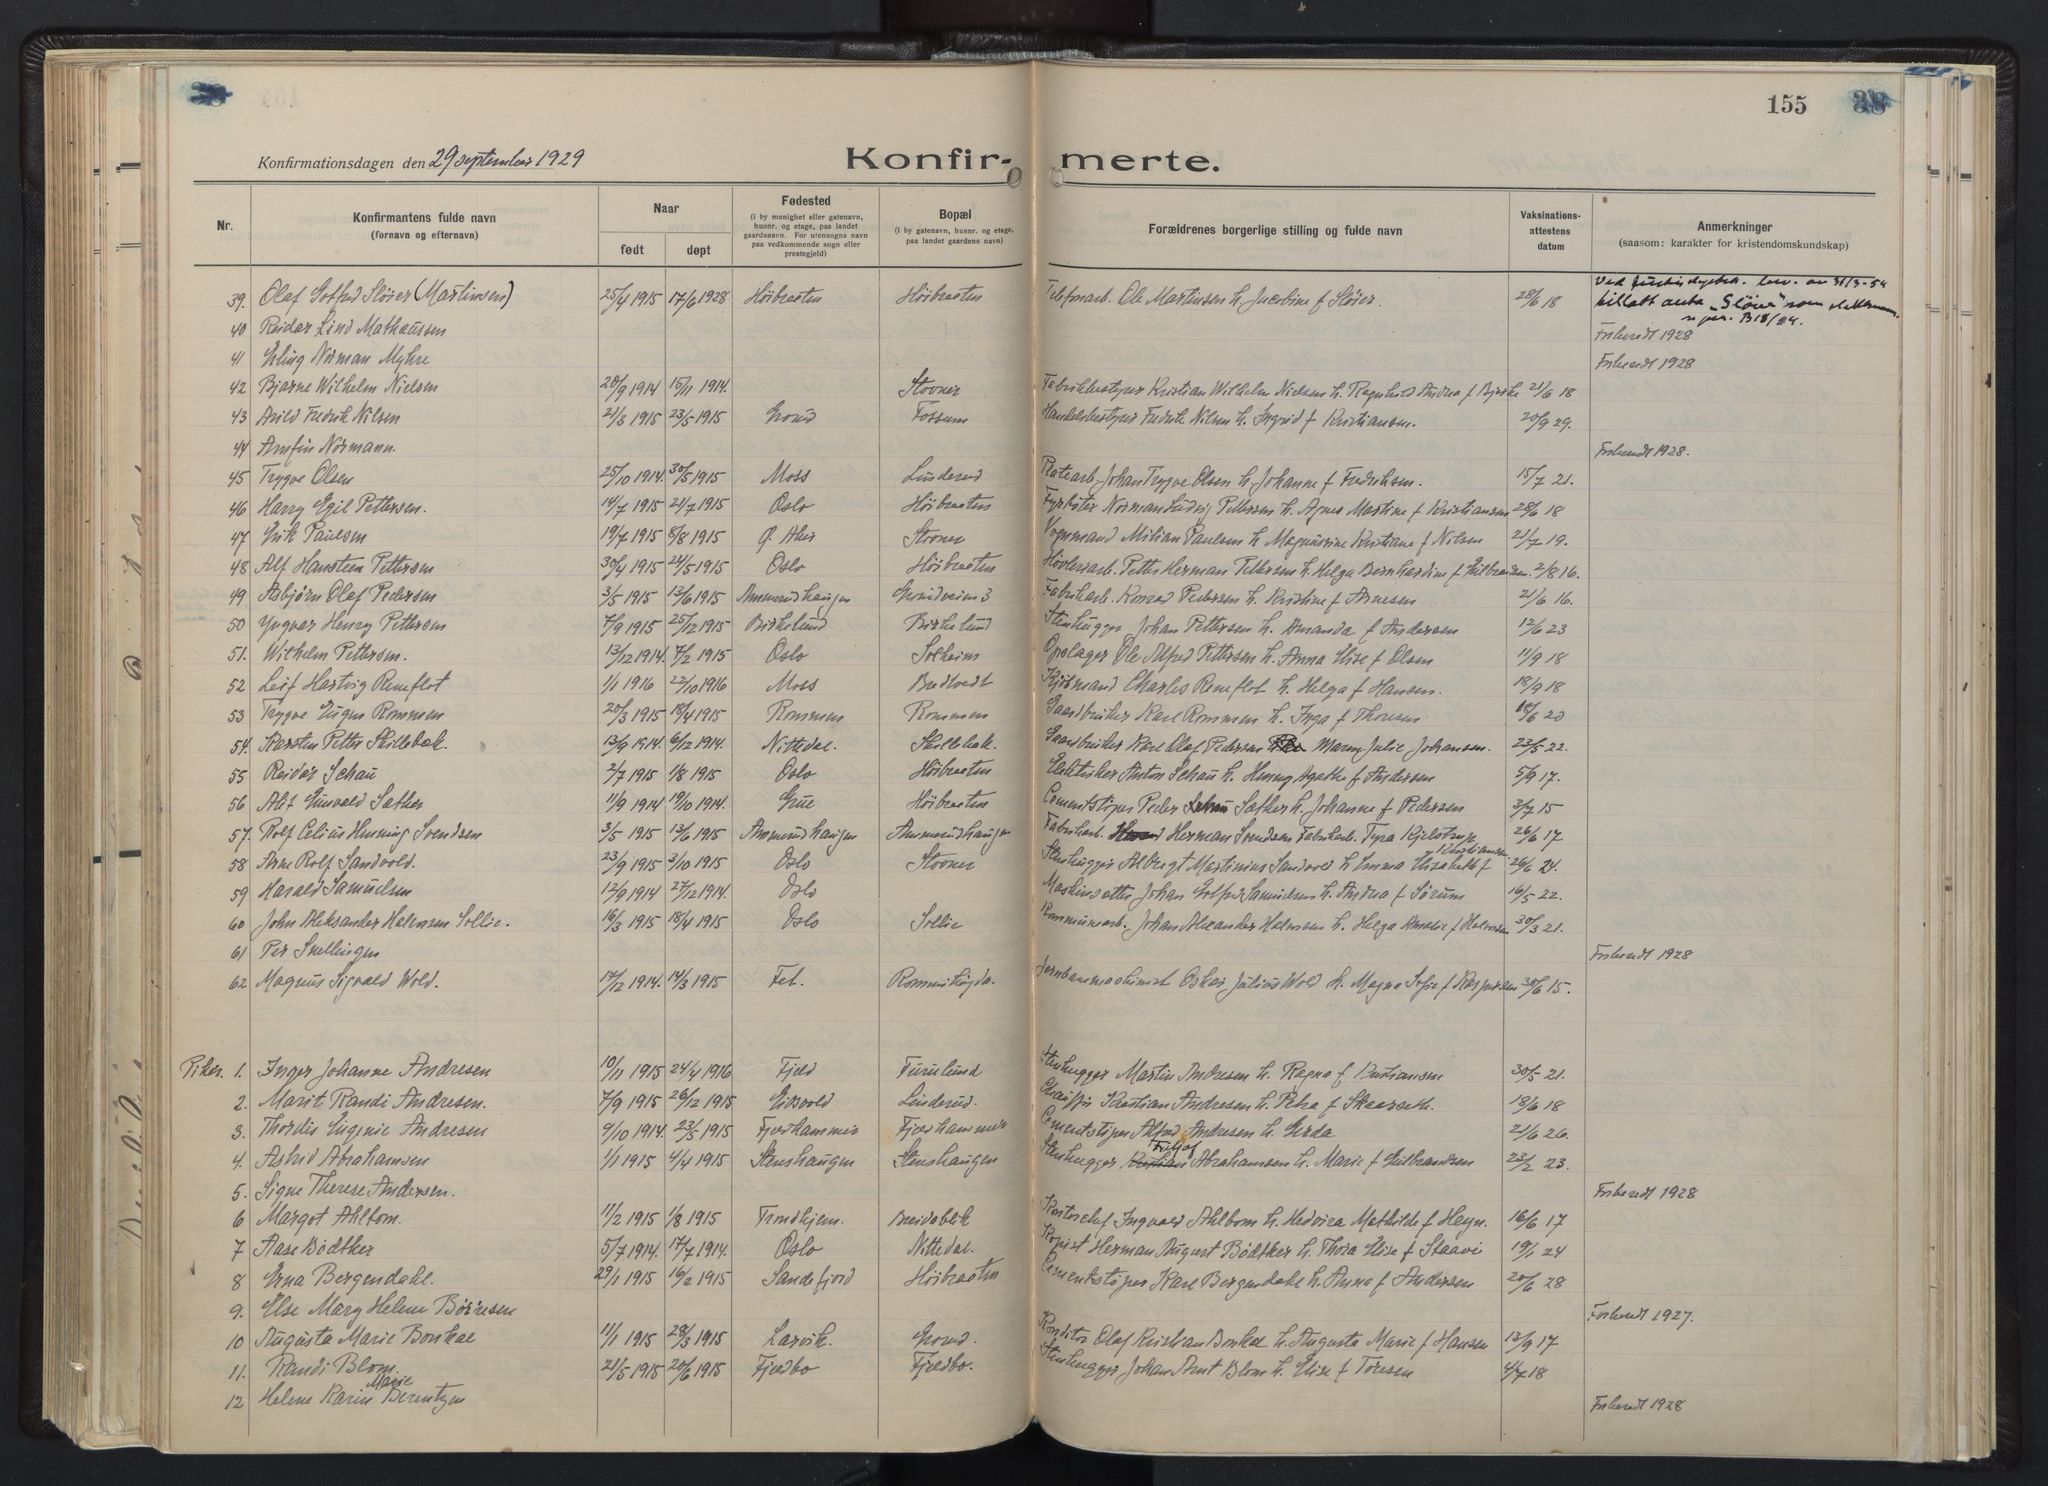 155 38
Konfirmationsdagen den 29 september 1929
Konfir- merte.
Nr.
Konfirmantens fulde navn
(fornavn og efternavn)
Naar
født
døpt
Fødested
(i by menighet eller gatenavn,
husnr. og etage, paa landet
gaardsnavn. For utensogns navn
paa vedkommende sogn eller
prestegjeld)
Bopæl
(i by gatenavn, husnr. og etage,
paa landet gaardens navn)
Forældrenes borgerlige stilling og fulde navn
Vaksinations-
attestens
datum
Anmerkninger
(saasom: karakter for kristendomskundskap)
39. Olaf Gotfred Sløier (Martinsen) 25/4 1915 17/6 1928 Høibraaten Høibraaten Telefonarb. Ole Martinsen h. Jacobine f Sløier. 28/6 18 Ved av 31/3-54 tillatt anta "Sløier" som
40 Reidar Lind Mathaussen Forberedt 1928
41 Erling Norman Myhre Forberedt 1928
42 Bjarne Wilhelm Nielsen 20/9 1914 15/11 1914. Stovner Fabrikbestyrer Kristian Wilhelm Nielsen h. Ragnhild Andrea f Bjerke 21/6 18
43 Arild Fredrik Nilsen 21/3 1915 23/5 1915 Grorud Fossum Handelsbestyrer Fredrik Nilsen h. Ingrid f Kristiansen. 20/9 29.
44 Arnfin Normann. Forberedt 1928.
45 Trygve Olsen 25/10 1914. 30/5 1915 Moss Linderud Platearb. Johan Trygve Olsen h. Johanne f Fredriksen. 15/7 21.
46 Harry Egil Pettersen. 14/7 1915 21/7 1915 Oslo Høibraaten Fyrbøter Norman Ludvig Pettersen h. Agnes Martine f Kristiansen 28/6 18
47 Erik Paulsen 19/7 1915 8/8 1915 Ø. Aker Stovner Vognmand Milian Paulsen h Magnusine Kristiane f Nilsen 21/7 19.
48 Alf Hansteen Pettersen 30/4 1915 24/5 1915 Oslo Høibraaten Høvleriarb. Petter Herman Pettersen h. Helga Bernhardine f Gulbrandsen. 2/8 16.
49 Asbjørn Olaf Pedersen 3/5 1915 13/6 1915 Ammerudhaugen Grorudveien 3 Fabrikarb. Konrad Pedersen h. Kristine f Arnesen 21/6 16.
50 Yngvar Henry Pettersen 7/9 1915 25/12 1915 Birkelund Birkelund Stenhugger Johan Pettersen h. Amanda f Andersen 12/6 23
51. Wilhelm Pettersen. 13/12 1914. 7/2 1915 Oslo Solheim Opslager Ole Alfred Pettersen h. Anna Elise f Olsen 11/9 18
52 Leif Hartvig Reneflot 1/1 1916 22/10 1916 Moss Bredtvedt Kjøbmand Charles Reneflot h. Helga f Hansen. 18/9 18
53 Trygve Eugen Rommen 20/3 1915 18/4 1915 Rommen Rommen Gaardbruker Karl Rommen h. Inga f Thoresen 18/6 20
54. Karsten Petter Skillebæk. 13/9 1914. 6/12 1914. Nittedal. Skillebæk. Gaardbruker Karl Olaf Pedersen Marny Julie Johansen. 23/5 22.
55 Reidar Schau 2/7 1915 1/8 1915 Oslo Høibraaten Elektriker Anton Schau h. Henny Agathe f Andersen 5/9 17.
56 Alif Gunvald Sæther 11/9 1914 19/10 1914. Grue Høibraaten Cementstøper Peder Schau Sæther h. Johanne f Pedersen 3/7 15
57. Rolf Celius Henning Svendsen 3/5 1915 13/6 1915 Ammerudhaugen Ammerudhaugen Fabrikarb. Herman Svendsen Fabrikarb. Tyra Kjelstrup 26/6 17
58 Arne Rolf Sandvold. 23/9 1915 3/10 1915 Oslo Stovner Stenhugger Albregt Martinius Sandvold h Emma Elisabeth f Kristiansen 26/6 24.
59 Harald Samuelsen 12/9 1914 27/12 1914. Oslo Maskinsetter Johan Gotfred Samuelsen h. Andrea f Sørum 16/5 22.
60 John Aleksander Halvorsen Sollie. 16/3 1915 18/4 1915 Oslo Sollie Kommunearb. Johan Alexander Halvorsen h. Helga Amalie f Halvorsen 30/3 21.
61 Per Snellingen Forberedt 1928
62 Magnus Sigvald Wold. 17/12 1914. 14/3 1915 Fet. Jernbanemaskinist Oskar Julius Wold h. Magna Sofie f Kaspersen 30/6 15.
Piker. 1. Inger Johanne Andresen 10/11 1915 24/4 1916 Fjeld Furulund Stenhugger Martin Andresen h. Ragna f Kristiansen 30/5 21.
2. Marit Randi Andresen. 7/9 1915 26/12 1915 Eidsvold Linderud. Chauffør Kristian Andresen h. Petra f Skaarseth. 18/6 18
3. Thordis Eugenie Andresen 9/10 1914. 23/5 1915 Fjeldhammer Fjeldhammer Cementstøper Alfred Andresen h. Gerda 21/6 26.
4. Astrid Abrahamsen 1/1 1915 4/4 1915 Stenshaugen Stenshaugen Stenhugger Kristian Fritjof Abrahamsen h. Marie f Gulbrandsen 23/2 23.
5. Signe Therese Andersen. Forberedt 1928
6 Margot Ahlbom. 11/2 1915 1/8 1915 Trondhjem. Breidablik Kontorchef Ingvald Ahlbom h. Hedvira Mathilde f Heyn. 16/6 17
7 Aase Bødtker 5/7 1914. 17/7 1914. Oslo Nittedal. Kopist Herman August Bødtker h. Thora Elise f Staavi 19/1 24
8 Erna Bergendahl. 29/1 1915 16/2 1915 Sandefjord Høibraaten Cementstøper Karl Bergendahl h. Anna f Andersen 20/6 28
9. Else Mary Helene Børresen Forberedt 1927.
10 Augusta Marie Bonkal 11/1 1915 28/3 1915 Larvik. Grorud. Konditor Olaf Kristian Bonkal h. Augusta Marie f Hansen 13/9 17
11. Randi Blom. 21/5 1915 20/6 1915 Fjeldbo Fjeldbo. Stenhugger Johan Arnt Blom h. Elise f Toresen 4/7 18
12 Helene Karin Marie Berentzen Forberedt 1928